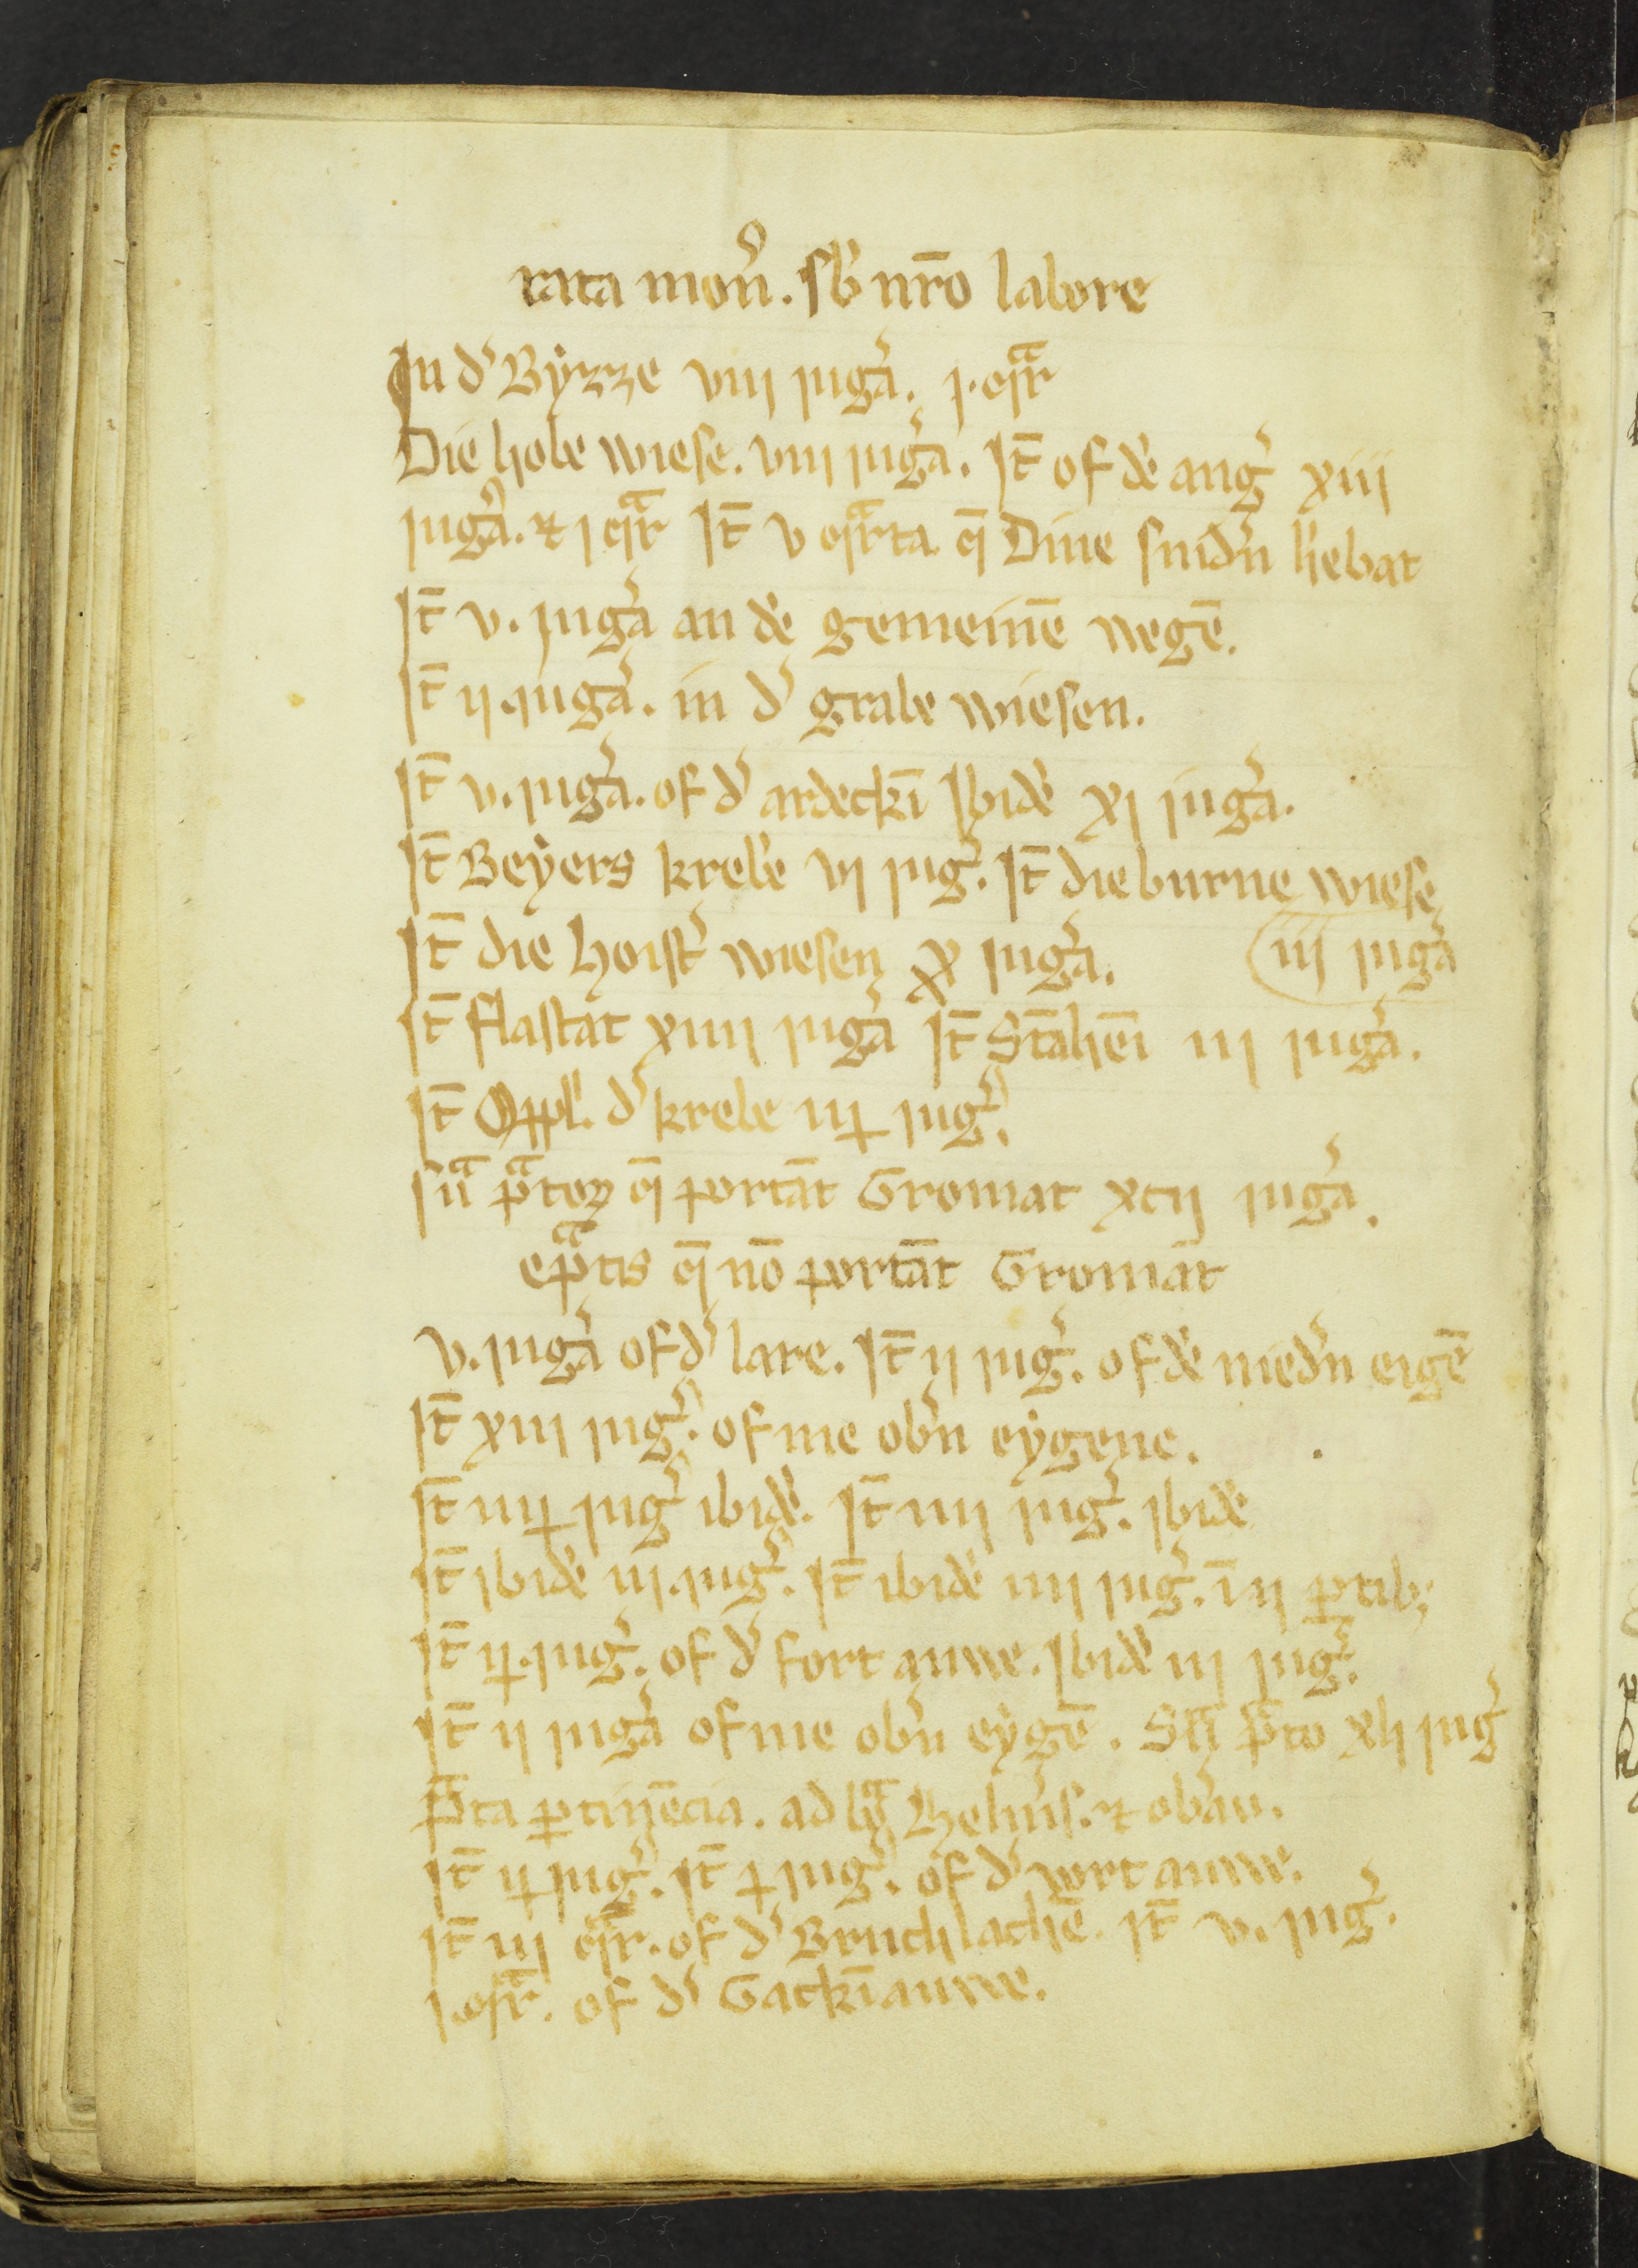 rata mon̄. sb̄ nr̄o labore
In d' Byzze viij iug̾a. j. q̄r
Die hole wiese. viij iug̾a. It̄ of dē ang̾ xiij
iug̾a. et j q̄r It̄ v q̄rta q̄ Dine snid̾n h̾ebat
It̄ v. iug̾a an dē gemeinē wegē.
It̄ ij. iug̾a. in d' grabe wiesen.
It̄ v. iug̾a. of d' ardeckī Ibidē xj iug̾a.
It̄ Beyers krebe vj iug̾. It̄ die burne wiese
It̄ die hoist̾ wiesen x iug̾a. iij iug̾a
It̄ flastat xiiij iug̾a It̄ Stāhēi iij iug̾a.
It̄ Oppl. d' krebe iij iug̾.
Sūa p̄toꝝ q̄ portāt Gromat xcij iug̾a.
ep̄tis q̄ nō portāt Gromāt
v. iug̾a of d' lare. It̄ ij iug̾. of dē nied̾n eigē
It̄ xiij iug̾. of me ob̾n eygene.
It̄ iiij iug̾ ibidē. It̄ iiij iug̾. ibidē
It̄ ibidē iij. iug̾. It̄ ibidē iiij iug̾. ī ij ꝑtib;
It̄ ij. iug̾. of d' fort auwe. Ibidē iij iug̾.
It̄ ij iug̾a of me ob̾n eygē. Sā p̄to xlj iug̾
p̄ta ꝑtinēcia. ad Helm̾s. et ob̾au.
It̄ ij iug̾. It̄ j iug̾. of d' vort auwe.
It̄ iij q̄r. of d' Bruchlachē. It̄ v. iug̾.
j. q̄r. of d' Gackīauwe.